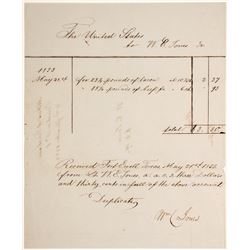 The United States
To W. E. Jones Dr
1853
May 21st for 23¾ pounds of bacon 2 37
" 18¾ pounds of beef 93
total 3. 30
Received Fort Ewell Texas May 21st 1853
from Lt W. E. Jones, a. a. c. s. three Dollars
and thirty cents in full of the above account
Duplicate
Wm E. Jones